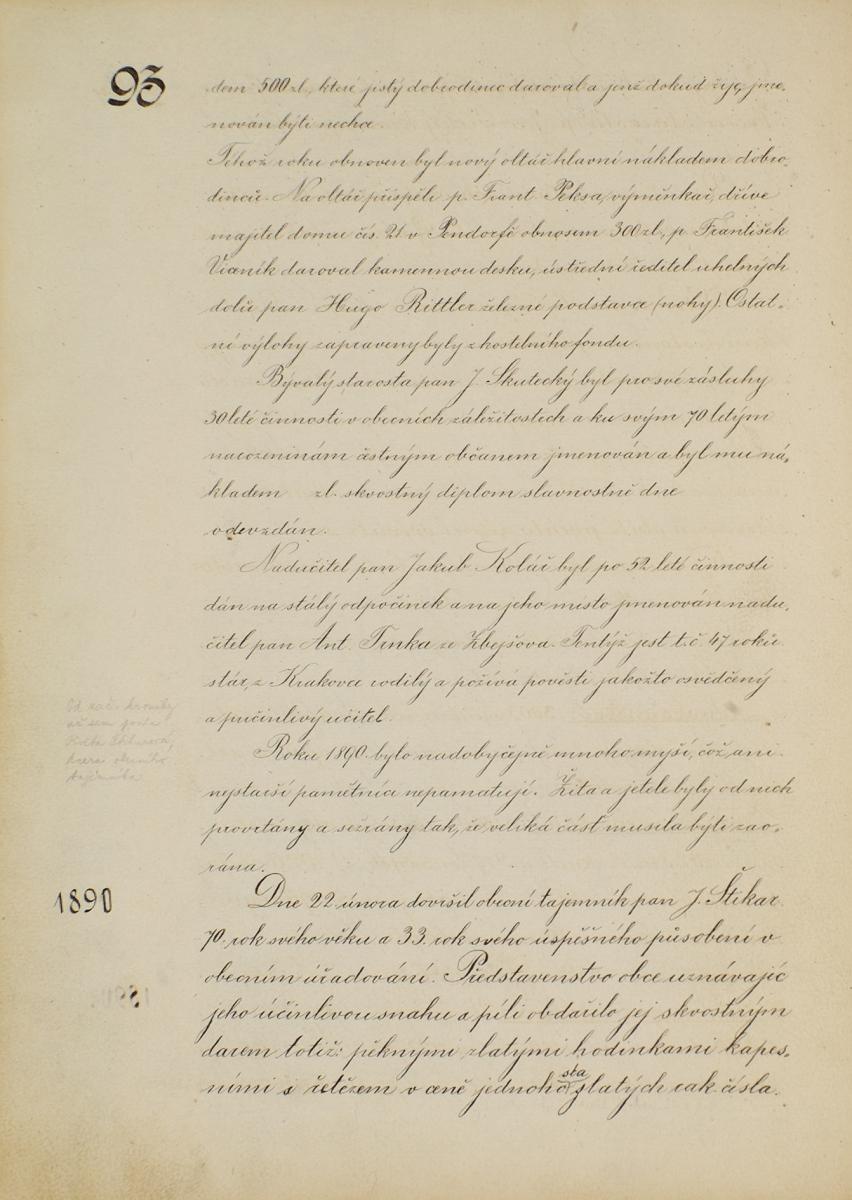 93
dem 500 zl., které jistý dobrodinec daroval a jenž dokud žije jme-
nován býti nechce.
Téhož roku obnoven byl nový oltář hlavní nákladem dobro-
dinců. Na oltář přispěli p. Frant. Peksa, výměnkář, dříve
majitel domu čís. 21 v Pendorfě obnosem 300 zl., p. František
Viceník daroval kamennou desku, ústřední ředitel uhelných
dolů pan Hugo Rittler železné podstavce (nohy). Ostat-
ní výlohy zapraveny byly z kostelního fondu.
Bývalý starosta pan J. Skutecký byl pro své zásluhy
30 leté činnosti v obecních záležitostech a ku svým 70 letým
narozeninám čestným občanem jmenován a byl mu ná-
kladem zl. skvostný diplom slavnostně dne
odevzdán.
Nadučitel pan Jakub Kolář byl po 52 leté činnosti
dán na stálý odpočinek a na jeho místo jmenován nadu-
čitel pan Ant. Trnka ze Zbejšova. Tentýž jest t. č. 47 roků
stár, z Krakovce rodilý a požívá pověsti jakožto osvědčený
a přičinlivý učitel.
Roku 1890 bylo nadobyčejně mnoho myší, což ani
nejstarší pamětníci nepamatují. Žita a jetele byly od nich
provrtány a sežrány tak, že veliká část musela býti zao-
rána.
1890
Dne 22 února dovršil obecní tajemník pan J. Štikar
70. rok svého věku a 33. rok svého úspěšného působení v
obecním úřadování. Představenstvo obce uznávajíc
jeho účinlivou snahu a píli obdařilo jej skvostným
darem totiž: pěknými zlatými hodinkami kapes-
ními s řetězem v ceně jednoho sta zlatých rak. čísla.